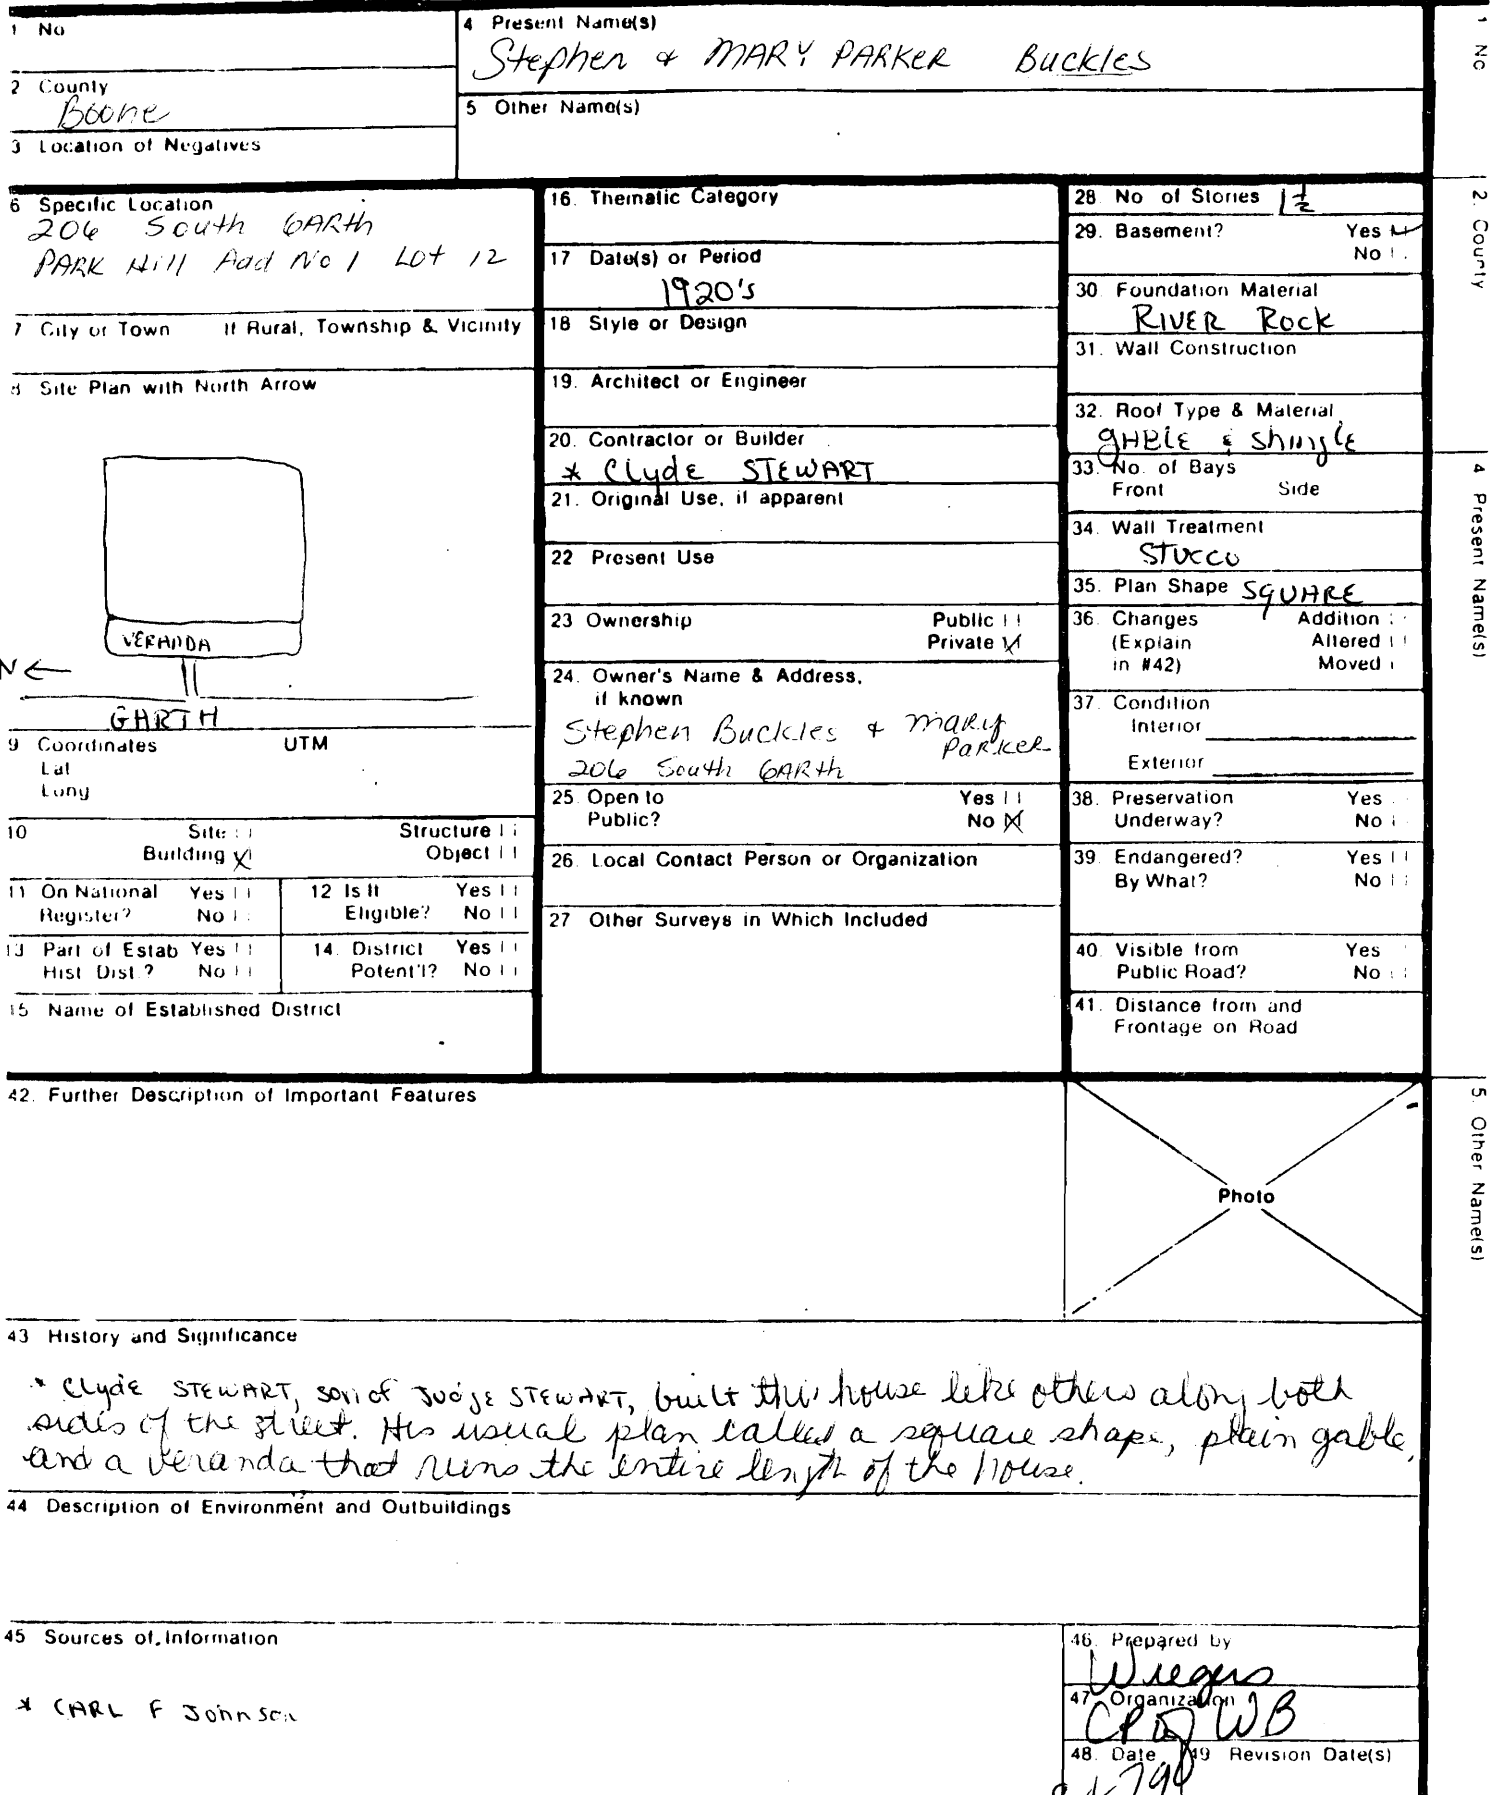 1 No
4 Present Name(s)
Stephen & MARY PARKER Buckles
2 County
Boone
5 Other Name(s)
3 Location of Negatives
6 Specific Location
206 South GARth
PARK Hill Add No 1 Lot 12
7 City or Town If Rural, Township & Vicinity
8 Site Plan with North Arrow
VERANDA
N
GARTH
9 Coordinates UTM
Lat
Long
10 Site Structure
Building X Object
11 On National Register? Yes No
12 Is It Eligible? Yes No
13 Part of Estab Hist Dist.? Yes No
14. District Potent'l? Yes No
15 Name of Established District
16. Thematic Category
17 Date(s) or Period
1920's
18 Style or Design
19. Architect or Engineer
20. Contractor or Builder
* Clyde STEWART
21. Original Use, if apparent
22 Present Use
23 Ownership Public
Private X
24. Owner's Name & Address,
if known
Stephen Buckles & MARY
PARKER
206 South GARth
25. Open to Yes
Public? No X
26. Local Contact Person or Organization
27 Other Surveys in Which Included
28. No of Stories 1 1/2
29. Basement? Yes
No
30. Foundation Material
RIVER Rock
31. Wall Construction
32. Roof Type & Material
gABlE & Shingle
33. No. of Bays
Front Side
34. Wall Treatment
STUCCO
35. Plan Shape SQUARE
36. Changes Addition
(Explain Altered
in #42) Moved
37. Condition
Interior
Exterior
38. Preservation Yes
Underway? No
39. Endangered? Yes
By What? No
40. Visible from Yes
Public Road? No
41. Distance from and
Frontage on Road
42. Further Description of Important Features
Photo
43 History and Significance
* Clyde STEWART, son of Judge STEWART, built this house like others along both
sides of the street. His usual plan called a square shape, plain gable,
and a veranda that runs the entire length of the house.
44 Description of Environment and Outbuildings
45 Sources of Information
* CARL F Johnson
46. Prepared by
Wiegers
47 Organization
48. Date 49 Revision Date(s)
1 No
2. County
4 Present Name(s)
5. Other Name(s)